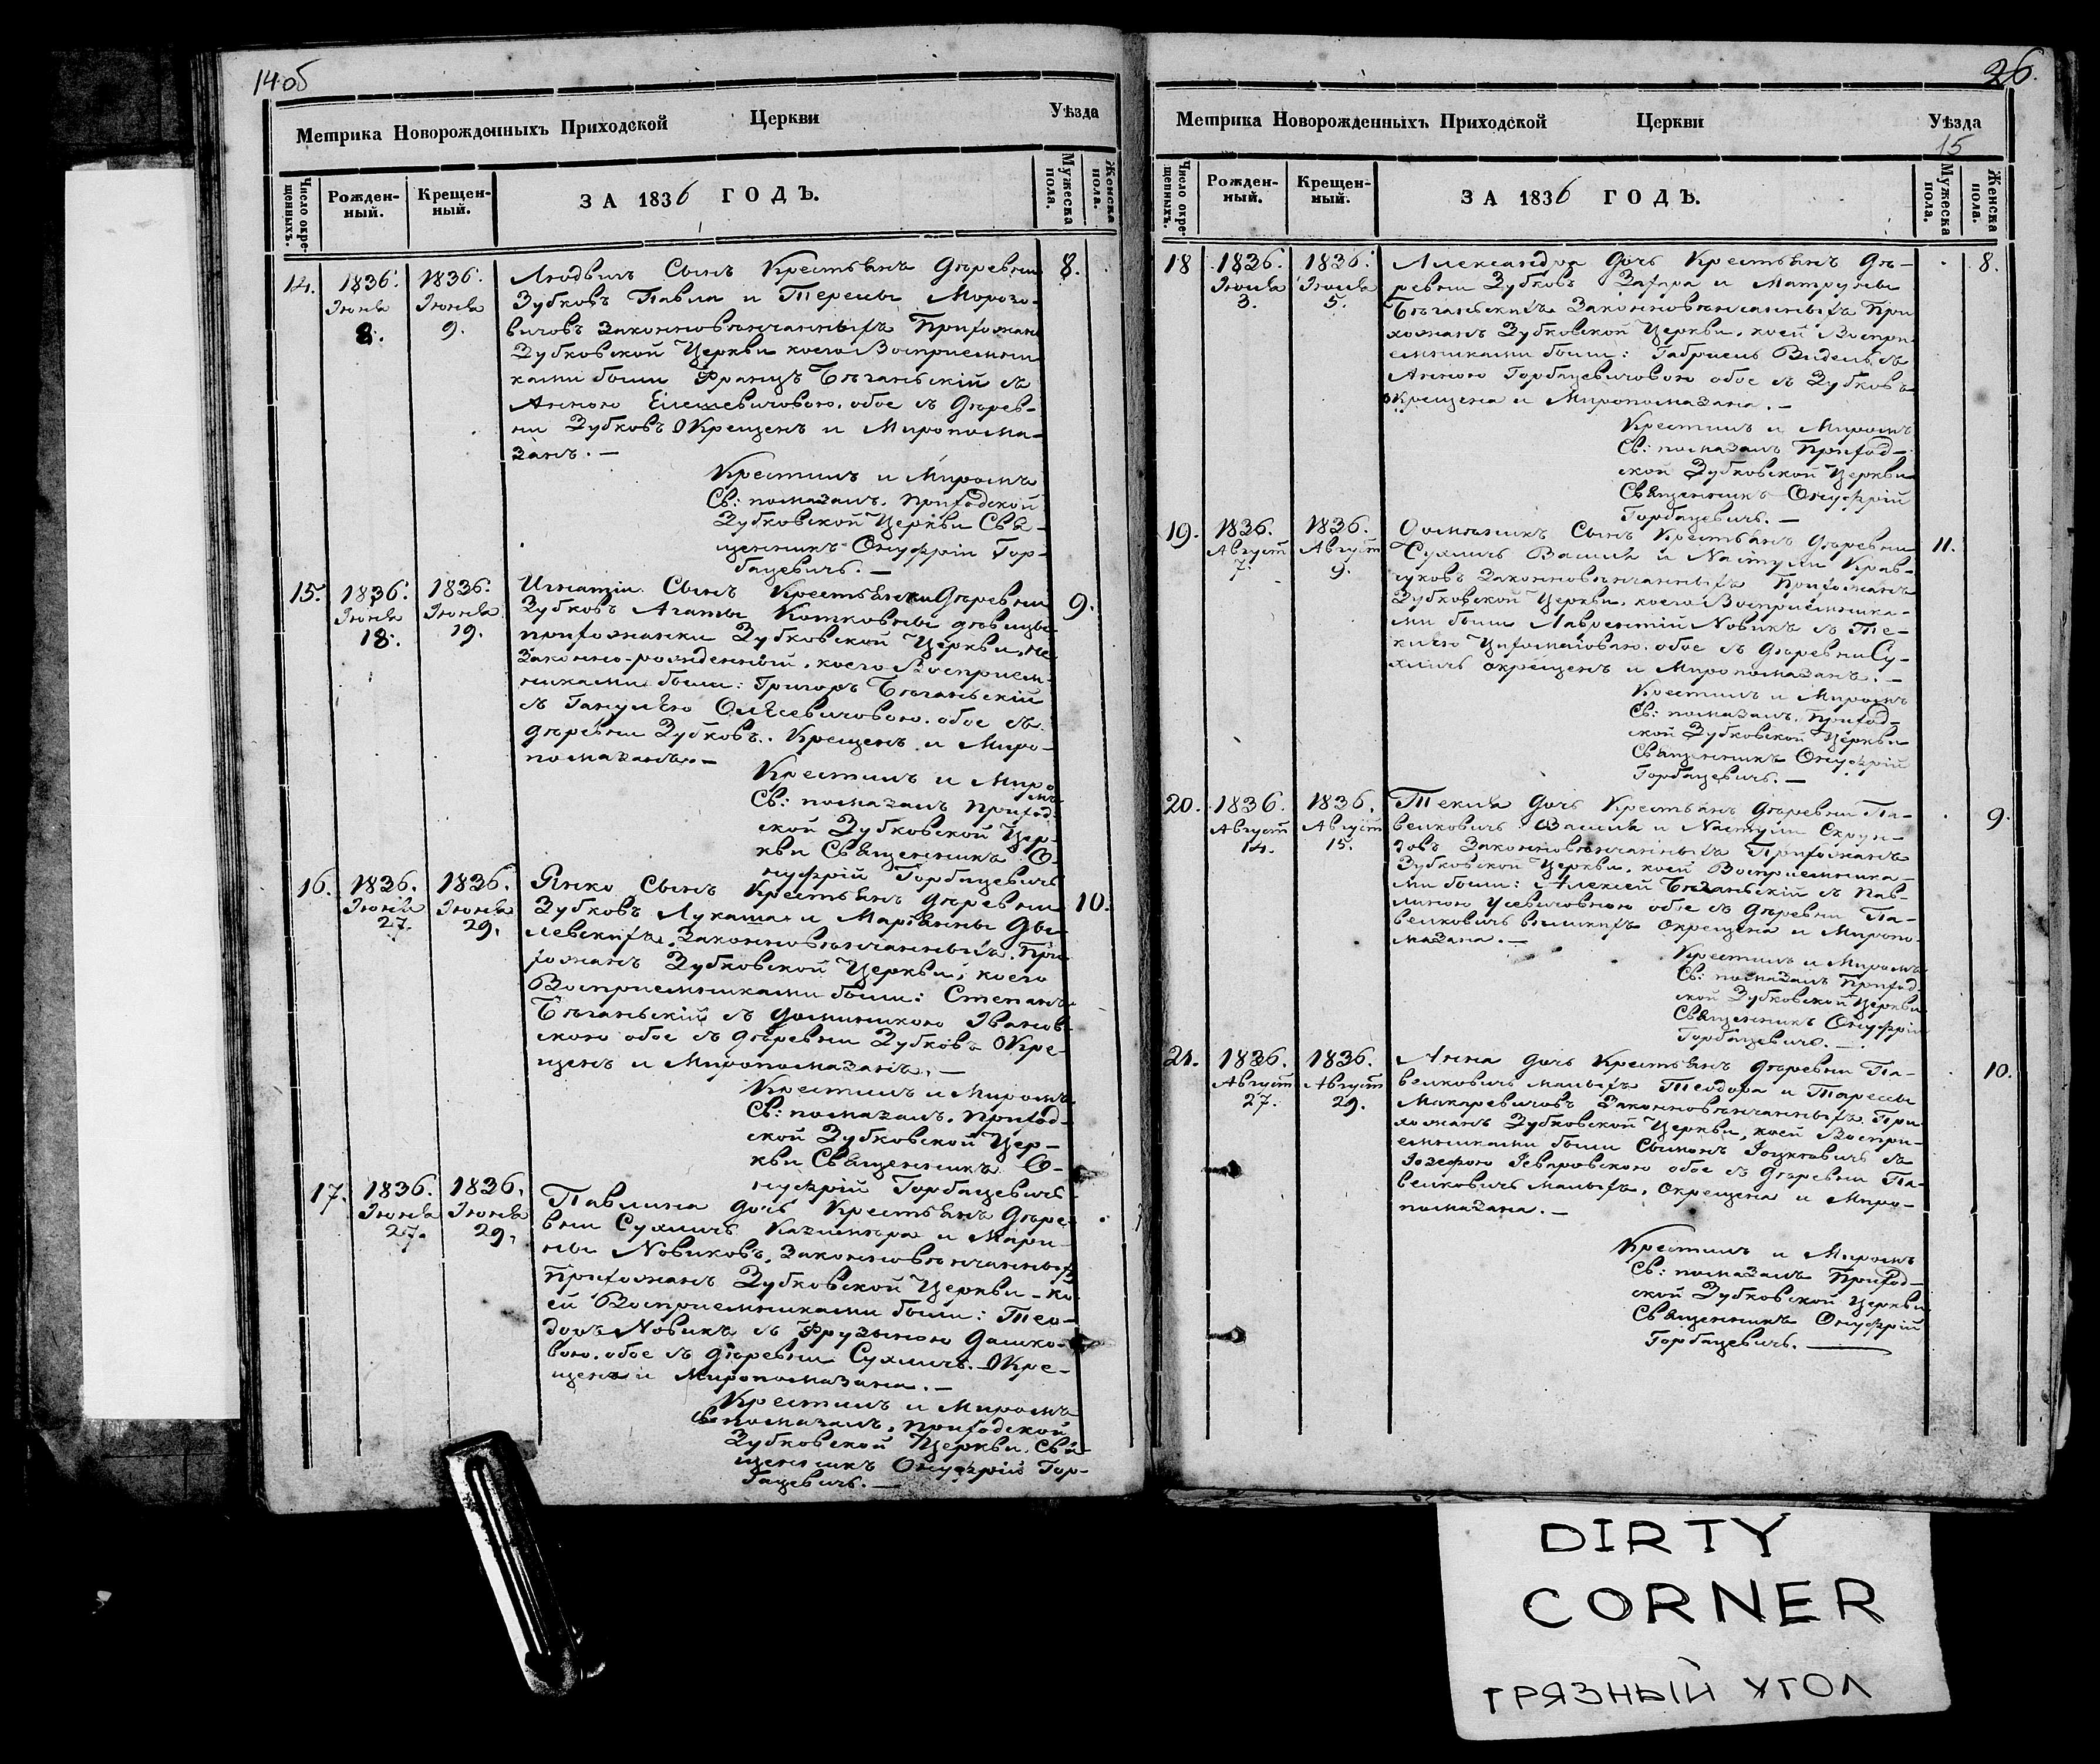 14 об
Метрика Новорожденныхъ Приходской Церкви Уѣзда
Число окрещенныхъ.
Рожденный.
Крещенный.
ЗА 1836 ГОДЪ.
Мужеска пола.
Женска пола.
14. 1836. 1836. Людвигъ Сынъ Крестьянъ Деревни 8.
Июня Июня Зубковъ Павла и Тересы Морозо-
8. 9. вичовъ законновѣнчанныхъ Прихожанъ
Зубковской Церкви коего Восприемни
ками были Францъ Бѣганьскій съ
Анною Елешевичовою. обое съ Дерев-
ни Зубковъ Окрещенъ и Миропома-
занъ. —
Крестилъ и Миромъ
Св: помазалъ. Приходской
Зубковской Церкви Свя-
щенникъ Онуфрій Гор-
бацевичъ. —
15. 1836. 1836. Игнатій Сынъ Крестьянки Деревни 9.
Июня Июня Зубковъ Агаты Котковны дѣвицы
18. 19. прихожанки Зубковской Церкви, не
Законно-рожденный. коего Восприем-
никами были: Григоръ Бѣганьскій
съ Ганулею обое съ
деревни Зубковъ. Крещенъ и Миро-
помазанъ. —
Крестилъ и Миромъ
Св: помазалъ Приход-
ской Зубковской Цер-
кви Священникъ О-
нуфрій Горбацевичъ
16. 1836. 1836. Янко Сынъ Крестьянъ Деревни 10.
Июня Июня Зубковъ Лукаша и Марьянны Ды-
27. 29. левскихъ. Законновѣнчанныхъ. При
хожанъ Зубковской Церкви, коего
Восприемниками были: Степанъ
Бѣганьскій съ Доминикою Іванов
скою обое съ деревни Зубковъ Окре-
щенъ и Миропомазанъ. —
Крестилъ и Миромъ
Св: помазалъ. Приход-
ской Зубковской Цер-
кви Священникъ О-
нуфрій Горбацевичъ
17. 1836. 1836. Павлина дочь Крестьянъ Дере-
Июня Июня вни Сухмичъ Казимѣра и Мари-
27. 29. ны Новиковъ. Законновѣнчанныхъ
Прихожанъ Зубковской Церкви — ко
ей Восприемниками были: Тео-
доръ Новикъ съ Фрузыною Дашко-
вою. обое съ деревни Сухмичъ. Окре-
щена и Миропомазана. —
Крестилъ и Миромъ
Св помазалъ, Приходской
Зубковской Церкви. Свя-
щенникъ Онуфрій Гор-
бацевичъ. —
26.
Метрика Новорожденныхъ Приходской Церкви Уѣзда
15
Число окрещенныхъ.
Рожденный.
Крещенный.
ЗА 1836 ГОДЪ.
Мужеска пола.
Женска пола.
18 1836. 1836. Александра дочь Крестьянъ Де- 8.
Июля Июля ревни Зубковъ Захара и Матруны
3. 5. Бѣганьскихъ Законновѣнчанныхъ При
хожанъ Зубковской Церкви, коей Воспри
емниками были: Габриель Видель съ
Анною Горбацевичовою обое съ Зубковъ
Окрещена и Миропомазана. —
Крестилъ и Миромъ
Св: помазалъ Приход-
ской Зубковской Церкви
Священникъ Онуфрій
Горбацевичъ. —
19. 1836. 1836. Доминикъ Сынъ Крестьянъ Деревни 11.
Август Август Сухмичъ Василя и Настули Крав-
7. 9. чуковъ Законновѣнчанныхъ Прихожанъ
Зубковской Церкви. коего Восприемника-
ми были Лаврентій Новикъ съ Те-
клею обое съ деревни Су-
хмичъ окрещенъ и Миропомазанъ. —
Крестилъ и Миромъ
Св: помазалъ. Приход-
ской Зубковской Церкви
Священникъ Онуфрій
Горбацевичъ. —
20. 1836. 1836. Текля дочь Крестьянъ деревни Па- 9.
Август Август велковичъ Василя и Настули Скрун-
14. 15. довъ Законновѣнчанныхъ Прихожанъ
Зубковской Церкви, коей Восприемника-
ми были: Алексей Бѣганьскій съ Пав-
линою обое съ деревни Па-
велковичъ великихъ Окрещена и Миропо-
мазана. —
Крестилъ и Миромъ
Св: помазалъ Приход-
ской Зубковской Церкви
Священникъ Онуфрій
Горбацевичъ. —
21. 1836. 1836. Анна дочь Крестьянъ деревни Па- 10.
Август Август велковичъ малыхъ Теодора и Тарессы
27. 29. Макаревичовъ Законновѣнчанныхъ При
хожанъ Зубковской Церкви, коей Воспри-
емниками были Сымонъ съ
Іозефою обое съ деревни Па-
велковичъ малыхъ. Окрещена и Миро-
помазана. —
Крестилъ и Миромъ
Св: помазалъ Приход-
ской Зубковской Церкви
Священникъ Онуфрій
Горбацевичъ. —
DIRTY
CORNER
ГРЯЗНЫЙ УГОЛ